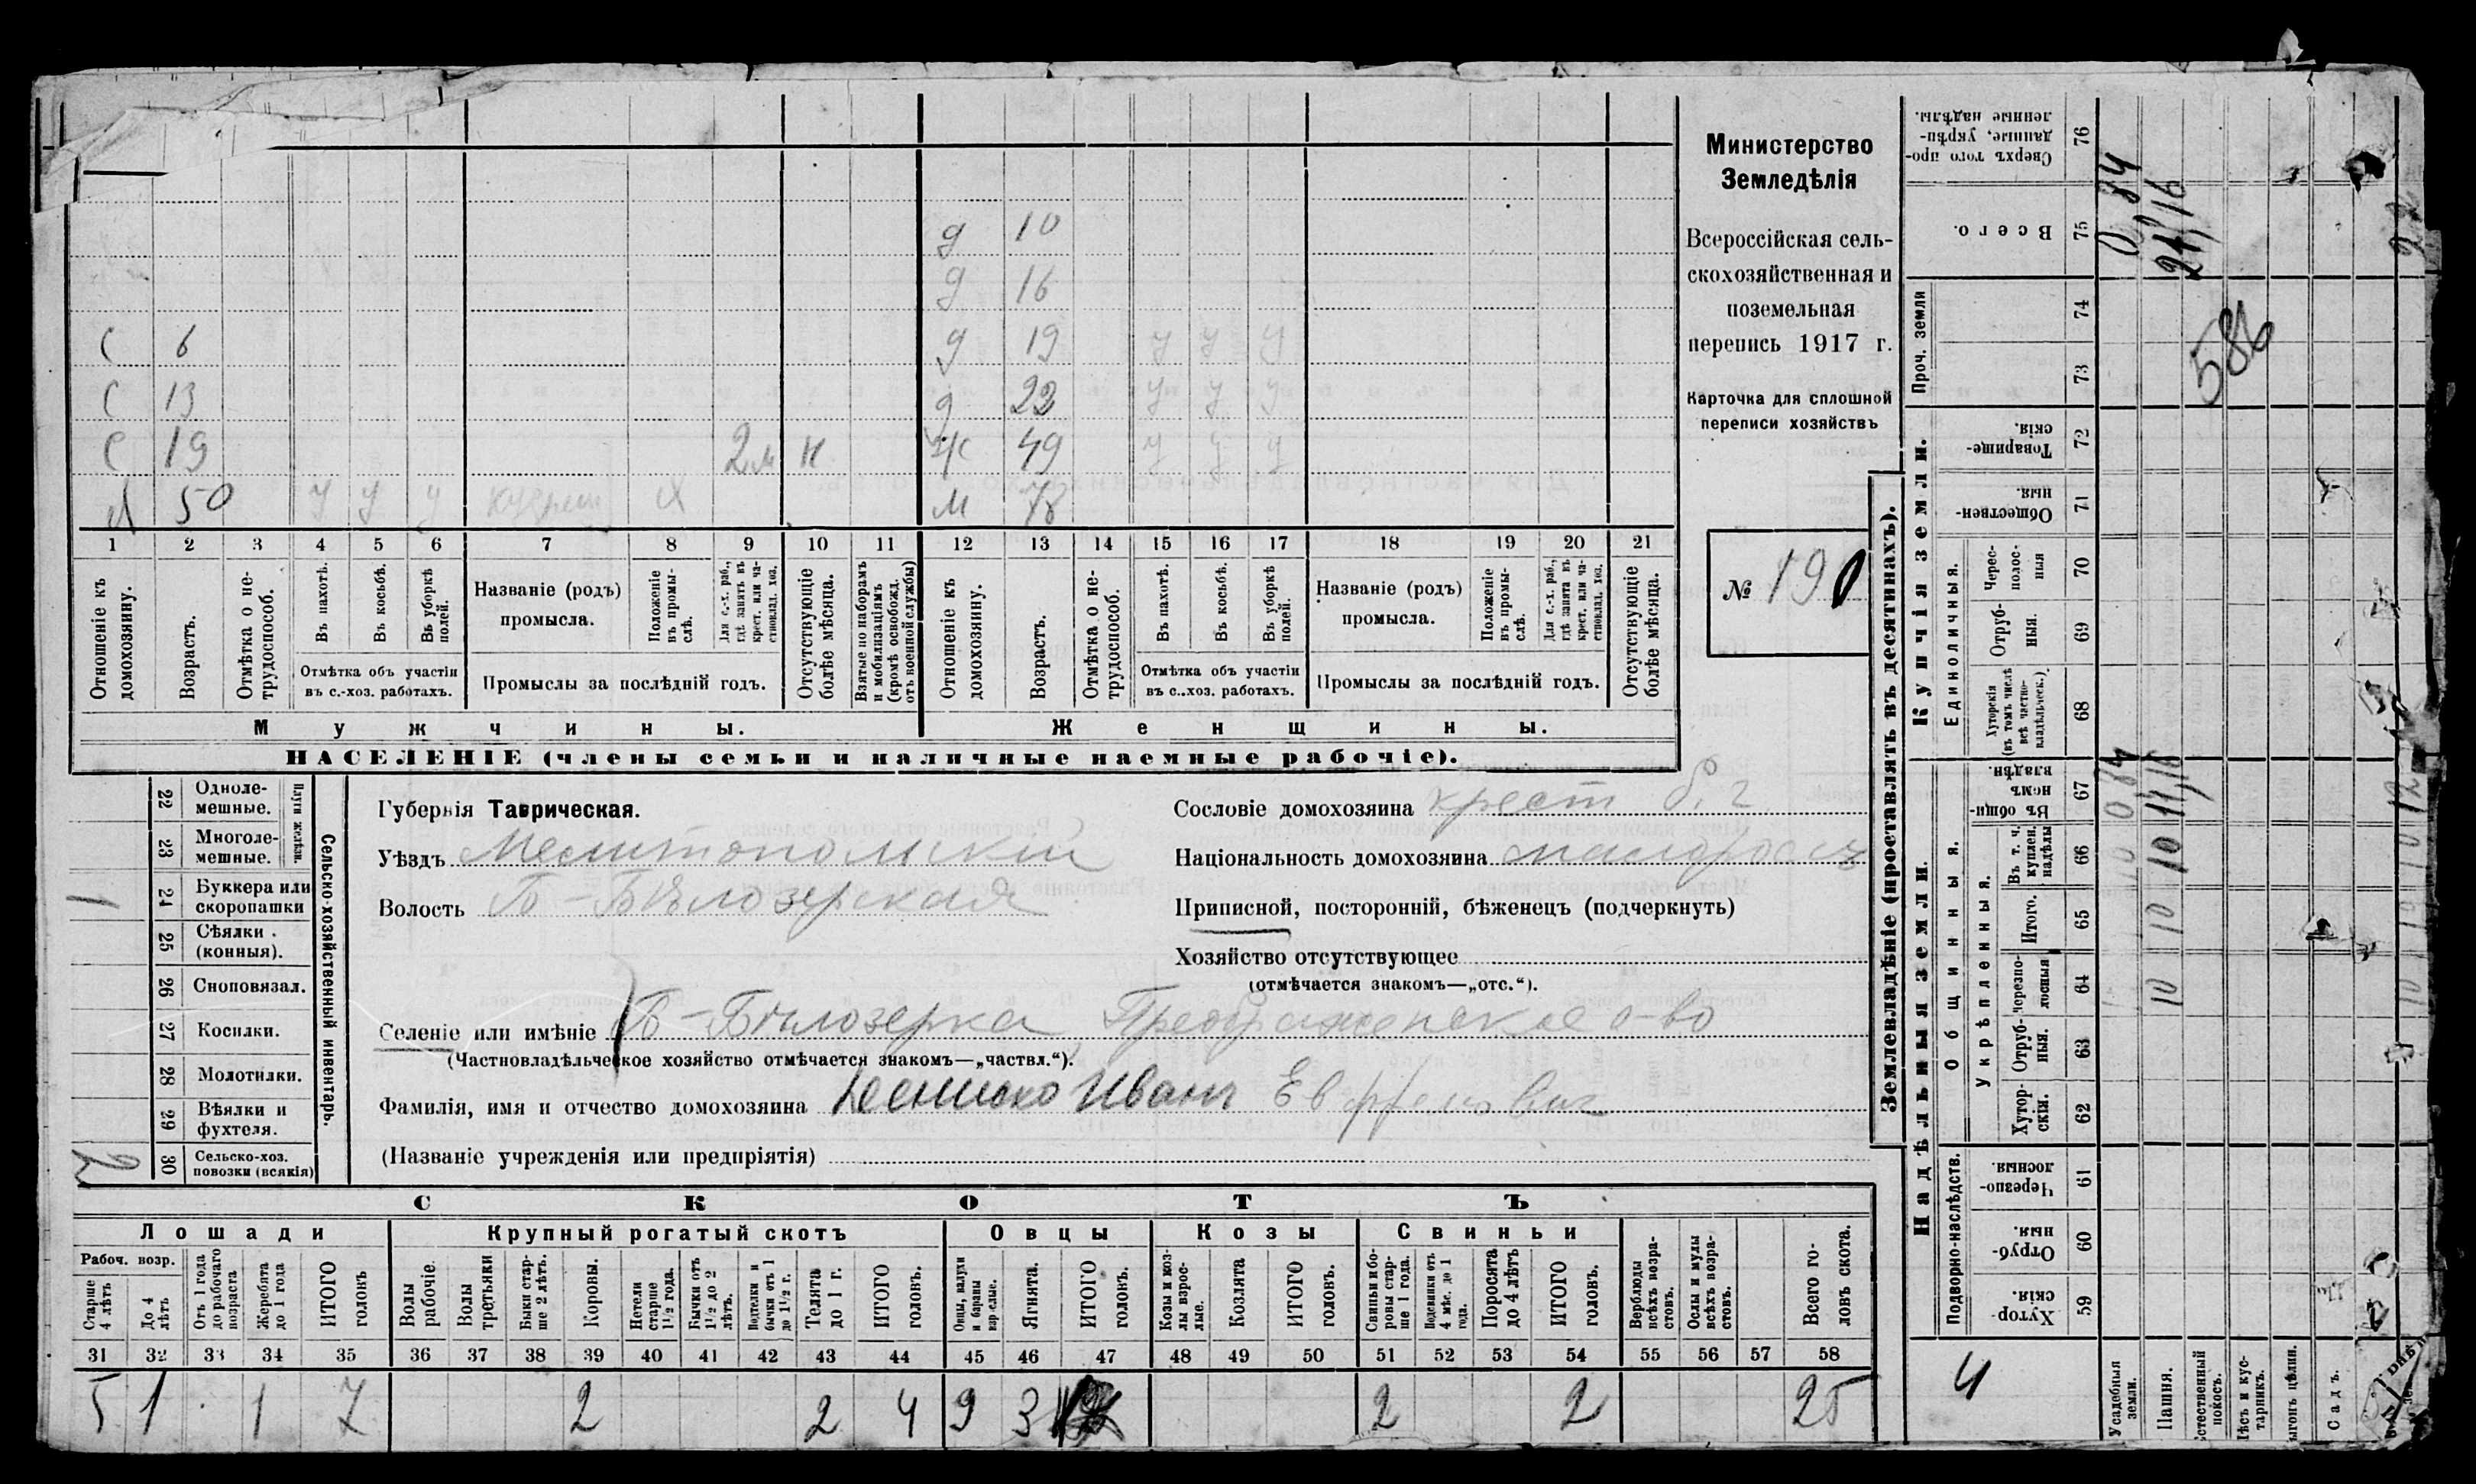 д 10
д 16
С 6 д 19 у у у
С 13 д 22 у у у
С 19 2 м н ж 49 у у у
50 у у у м 78
1 2 3 4 5 6 7 8 9 10 11 12 13 14 15 16 17 18 19 20 21
Отношеніе къ домохозяину.
Возрастъ.
Отмѣтка о не-
трудоспособ.
Въ пахотѣ.
Въ косьбѣ.
Въ уборкѣ полей.
Отмѣтка объ участіи
въ с.-хоз. работахъ.
Названіе (родъ)
промысла.
Положеніе въ промы-
слѣ.
Для с.-х. раб., гдѣ занятъ въ крест. или ча-
стновлад. хоз.
Промыслы за послѣдній годъ.
Отсутствующіе болѣе мѣсяца.
Взятые по наборамъ и мобилизаціямъ (кромѣ освобожд. отъ военной службы)
Отношеніе къ домохозяину.
Возрастъ.
Отмѣтка о не-
трудоспособ.
Въ пахотѣ.
Въ косьбѣ.
Въ уборкѣ полей.
Отмѣтка объ участіи
въ с..хоз. работахъ.
Названіе (родъ)
промысла.
Положеніе въ промы-
слѣ.
Для с.-х. раб., гдѣ занята въ крест. или ча-
стновлад. хоз.
Промыслы за послѣдній годъ.
Отсутствующіе болѣе мѣсяца.
Мужчины. Женщины.
НАСЕЛЕНІЕ (члены семьи и наличные наемные рабочіе).
Министерство
Земледѣлія
Всероссійская сель-
скохозяйственная и
поземельная
перепись 1917 г.
Карточка для сплошной
переписи хозяйствъ
№ 190
22 Однолемешные.
23 Многолемешные.
Плуги желѣзн.
24 Буккера или скоропашки 1
25 Сѣялки (конныя).
26 Сноповязал.
27 Косилки.
28 Молотилки.
29 Вѣялки и фухтеля.
30 Сельско-хоз. повозки (всякія) 2
Сельско-хозяйственный инвентарь.
Губернія Таврическая.
Уѣздъ Мелитопольскій
Волость Б-Бѣлозерская
Селеніе или имѣніе Б-Бѣлозерка, Преображенское о-во
(Частновладѣльческое хозяйство отмѣчается знакомъ—„частвл.“).
Фамилія, имя и отчество домохозяина Иванъ
(Названіе учрежденія или предпріятія)
Сословіе домохозяина крест
Національность домохозяина малороссъ
Приписной, посторонній, бѣженецъ (подчеркнуть)
Хозяйство отсутствующее
(отмѣчается знакомъ—„отс.“).
СКОТЪ
Лошади Крупный рогатый скотъ Овцы Козы Свиньи
Рабоч. возр.
Старше 4 лѣтъ
До 4 лѣтъ
Отъ 1 года до рабочаго возраста
Жеребята до 1 года
ИТОГО головъ
Волы рабочіе.
Волы третьяки
Быки стар-
ше 2 лѣтъ.
Коровы.
Нетели старше 1½ года.
Бычки отъ 1½ до 2 лѣтъ.
Подтелки и бычки отъ 1 до 1½ г.
Телята до 1 г.
ИТОГО головъ.
Овцы, валухи и бараны взрослые.
Ягнята.
ИТОГО головъ.
Козы и коз-
лы взрос-
лые.
Козлята
ИТОГО головъ.
Свиньи и бо-
ровы стар-
ше 1 года.
Подсвинки отъ 4 мѣс. до 1 года.
Поросята до 4 лѣтъ
ИТОГО головъ.
Верблюды всѣхъ возра-
стовъ.
Ослы и мулы всѣхъ возра-
стовъ.
Всего го-
ловъ скота.
31 32 33 34 35 36 37 38 39 40 41 42 43 44 45 46 47 48 49 50 51 52 53 54 55 56 57 58
5 1 1 7 2 2 4 9 3 12 2 2 25
Землевладѣніе (проставлять въ десятинахъ).
Надѣльныя земли. Купчія земли.
Подворно-наслѣдств. Общинныя. Укрѣпленныя. Единоличныя. Проч. земли
Хутор-
скія. 59
Отруб-
ныя. 60
Черезпо-
лосныя. 61
Хутор-
скія. 62
Отруб-
ныя. 63
Черезпо-
лосныя 64
Итого. 65
Въ т. ч. куплен. надѣлы 66
Въ общин-
номъ владѣн. 67
Хуторскія (въ томъ числѣ всѣ частно-
владѣльческ.) 68
Отруб-
ныя. 69
Черес-
полос-
ныя 70
Обществен-
ныя. 71
Товарище-
скія. 72
73
74
Всего. 75
Сверхъ того про-
данные, укрѣп-
ленные надѣлы. 76
4
Усадебныя земли. 0,84 0,84
Пашня. 10 10 10 11,16 21,16
Естественный покосъ.
Лѣсъ и кус-
тарникъ.
Выгонъ цѣлин.
Садъ.
586